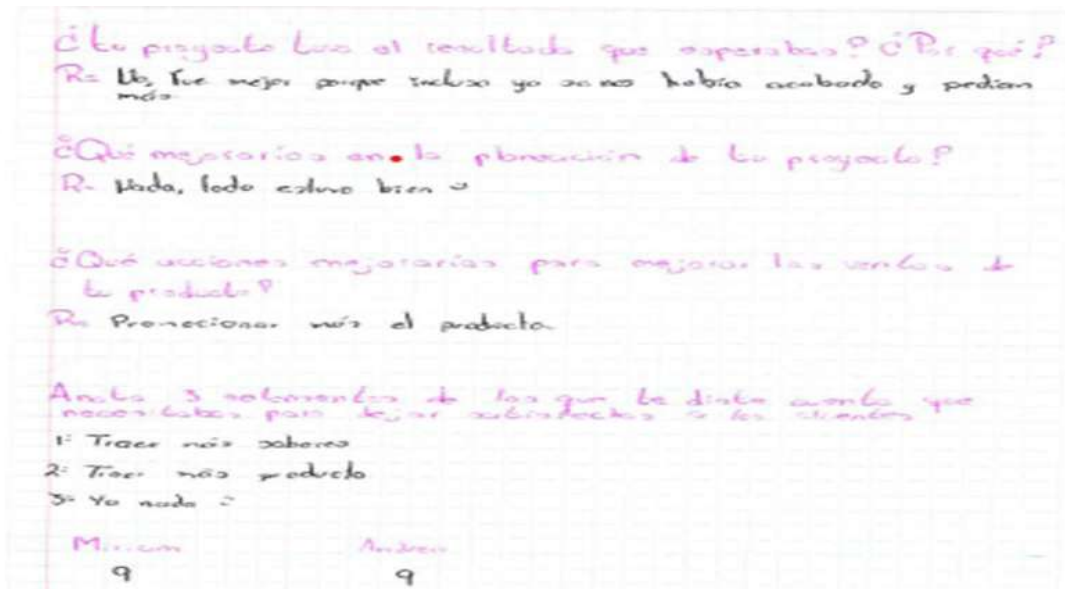 ¿Tu proyecto tuvo el resultado que esperabas? ¿Por qué?
R= No, fue mejor porque incluso ya se nos había acabado y pedían
más
¿Qué mejorarías en la planeación de tu proyecto?
R= Nada, todo estuvo bien
¿Qué acciones mejorarías para mejorar las ventas de
tu producto?
R= Promocionar más el producto
Anota 3 de los que te diste cuenta que
necesitabas para dejar satisfechos a los clientes
1= Traer más sabores
2= Traer más producto
3= Ya nada
Miriam Andrea
9 9